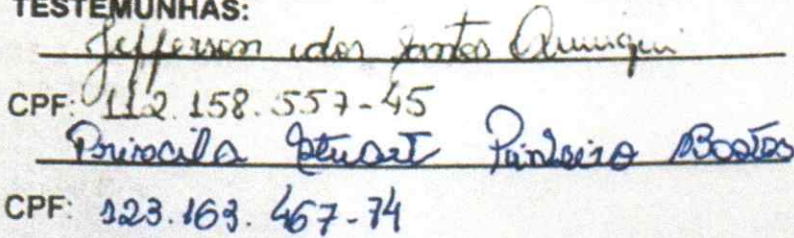 TESTEMUNHAS:
Jefferson dos Santos
CPF: 112.158.557-45
Priscila Stuart Pinheiro Bastos
CPF: 123.163.467-74